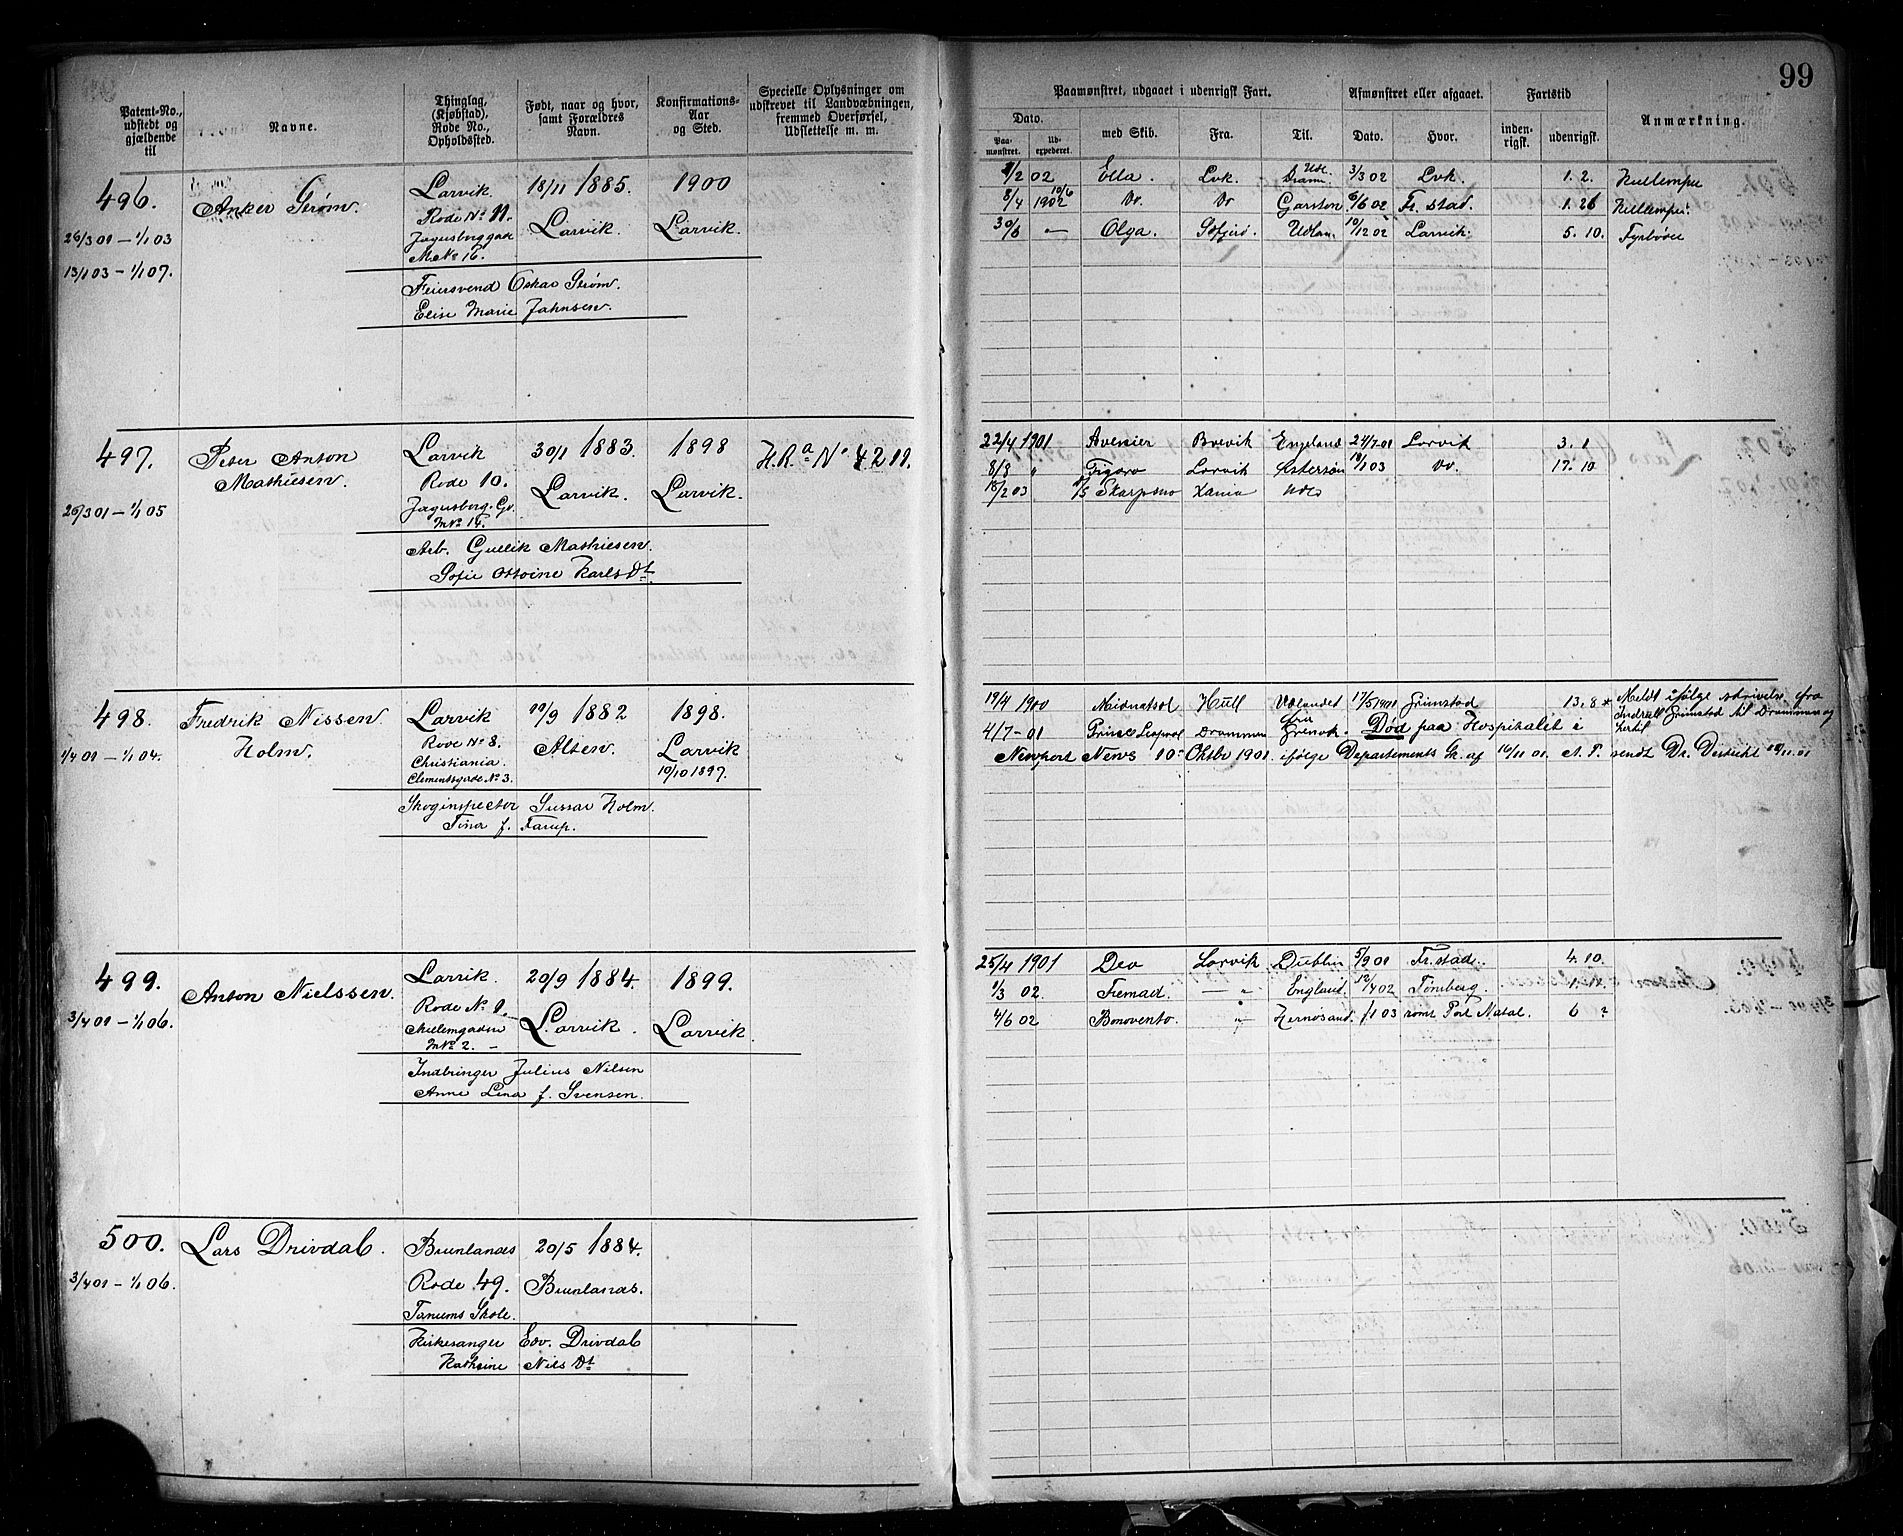 99
Patent-No., udstedt og gjældende til
Navne.
Thinglag, (Kjøbstad), Rode No., Opholdssted.
Født, naar og hvor, samt Forældres Navn.
Konfirmations-Aar og Sted.
Specielle Oplysninger om udskrevet til Landvæbningen, fremmed Overførsel, Udslettelse m. m.
Paamønstret, udgaaet i udenrigsk Fart.
Dato.
Paa-mønstret.
Ud-expederet.
med Skib.
Fra.
Til.
Afmønstret eller afgaaet.
Dato.
Hvor.
Fartstid
inden-rigsk.
udenrigsk.
Anmærkning.
496. Anker Strøm. Larvik 18/11 1885. 1900
26/3 01 – 1/1 03 Rode No 11. Larvik. Larvik.
13/1 03 – 1/1 07. Jegersborggade
M No 16.
Feiersvend Oskar Strøm.
Elise Marie Jahnsen.
/2 02 Ella. Lvk. Dram 3/3 02 Lvk. 1. 2.
8/4 1902 10/6 Do. Do Garston 6/6 02 Fr. stad. 1. 26
30/6 — Olga. 10/12 02 Larvik. 5. 10. Fyrbøder
497. Peter Anton Mathiesen. Larvik 30/1 1883. 1898 H.R.a No 4211.
26/3 01 – 1/1 05 Rode 10. Larvik. Larvik.
Jegersborg. Gd.
M No 14.
Arb. Gullik Mathiesen.
Sofie Karls Dt.
22/4 1901 Brevik England 24/7 01 Larvik 3. 1
8/8 " Figaro Larvik 18/1 03 Do. 17. 10
18/2 03 /5 Skarpsno Xania Udes
498. Fredrik Nissen Holm. Larvik 11/9 1882 1898.
1/4 01 – 1/1 04. Rode No 8. Alten. Larvik
Christiania 10/10 1897.
Clementsgade No 3.
Skoginspector Holm.
Tina f. Farup.
19/4 1900 Meidnatsol Hull Udlandet 17/5 1901 Grimstad 13. 8 * Meldt ifølge skrivelse fra
Indrull Grimstad til Drammen og hertil
4/7 – 01 Prince Leopold Drammen fra Død paa Hospitalet i
Newport News 10 Oktbr 1901. ifølge Departements Sk. af 16/11 01 A. P. sendt Dr. Distrikt /11.01
499. Anton Nielssen. Larvik. 20/9 1884. 1899.
3/4 01 – 1/1 06. Rode No 1. Larvik. Larvik.
M No 2. –
Indbringer Julius Nilsen
Anne Lina f. Svensen.
25/4 1901 Deo Larvik Dublin 5/9 01 Fr. stad. 4. 10.
1/3 02. Fremad. — " England 12/4 02 Tønsberg. 1. 11.
4/6 02 Bonovento. " Hernosand. /1 03 rømt Port Natal. 6 ?
500. Lars Drivdal. Brunlanæs 20/5 1884.
3/4 01 – 1/1 06. Rode 49. Brunlanæs.
Tanums Skole.
Kirkesanger Edv. Drivdal
Kathrine Nils Dt.